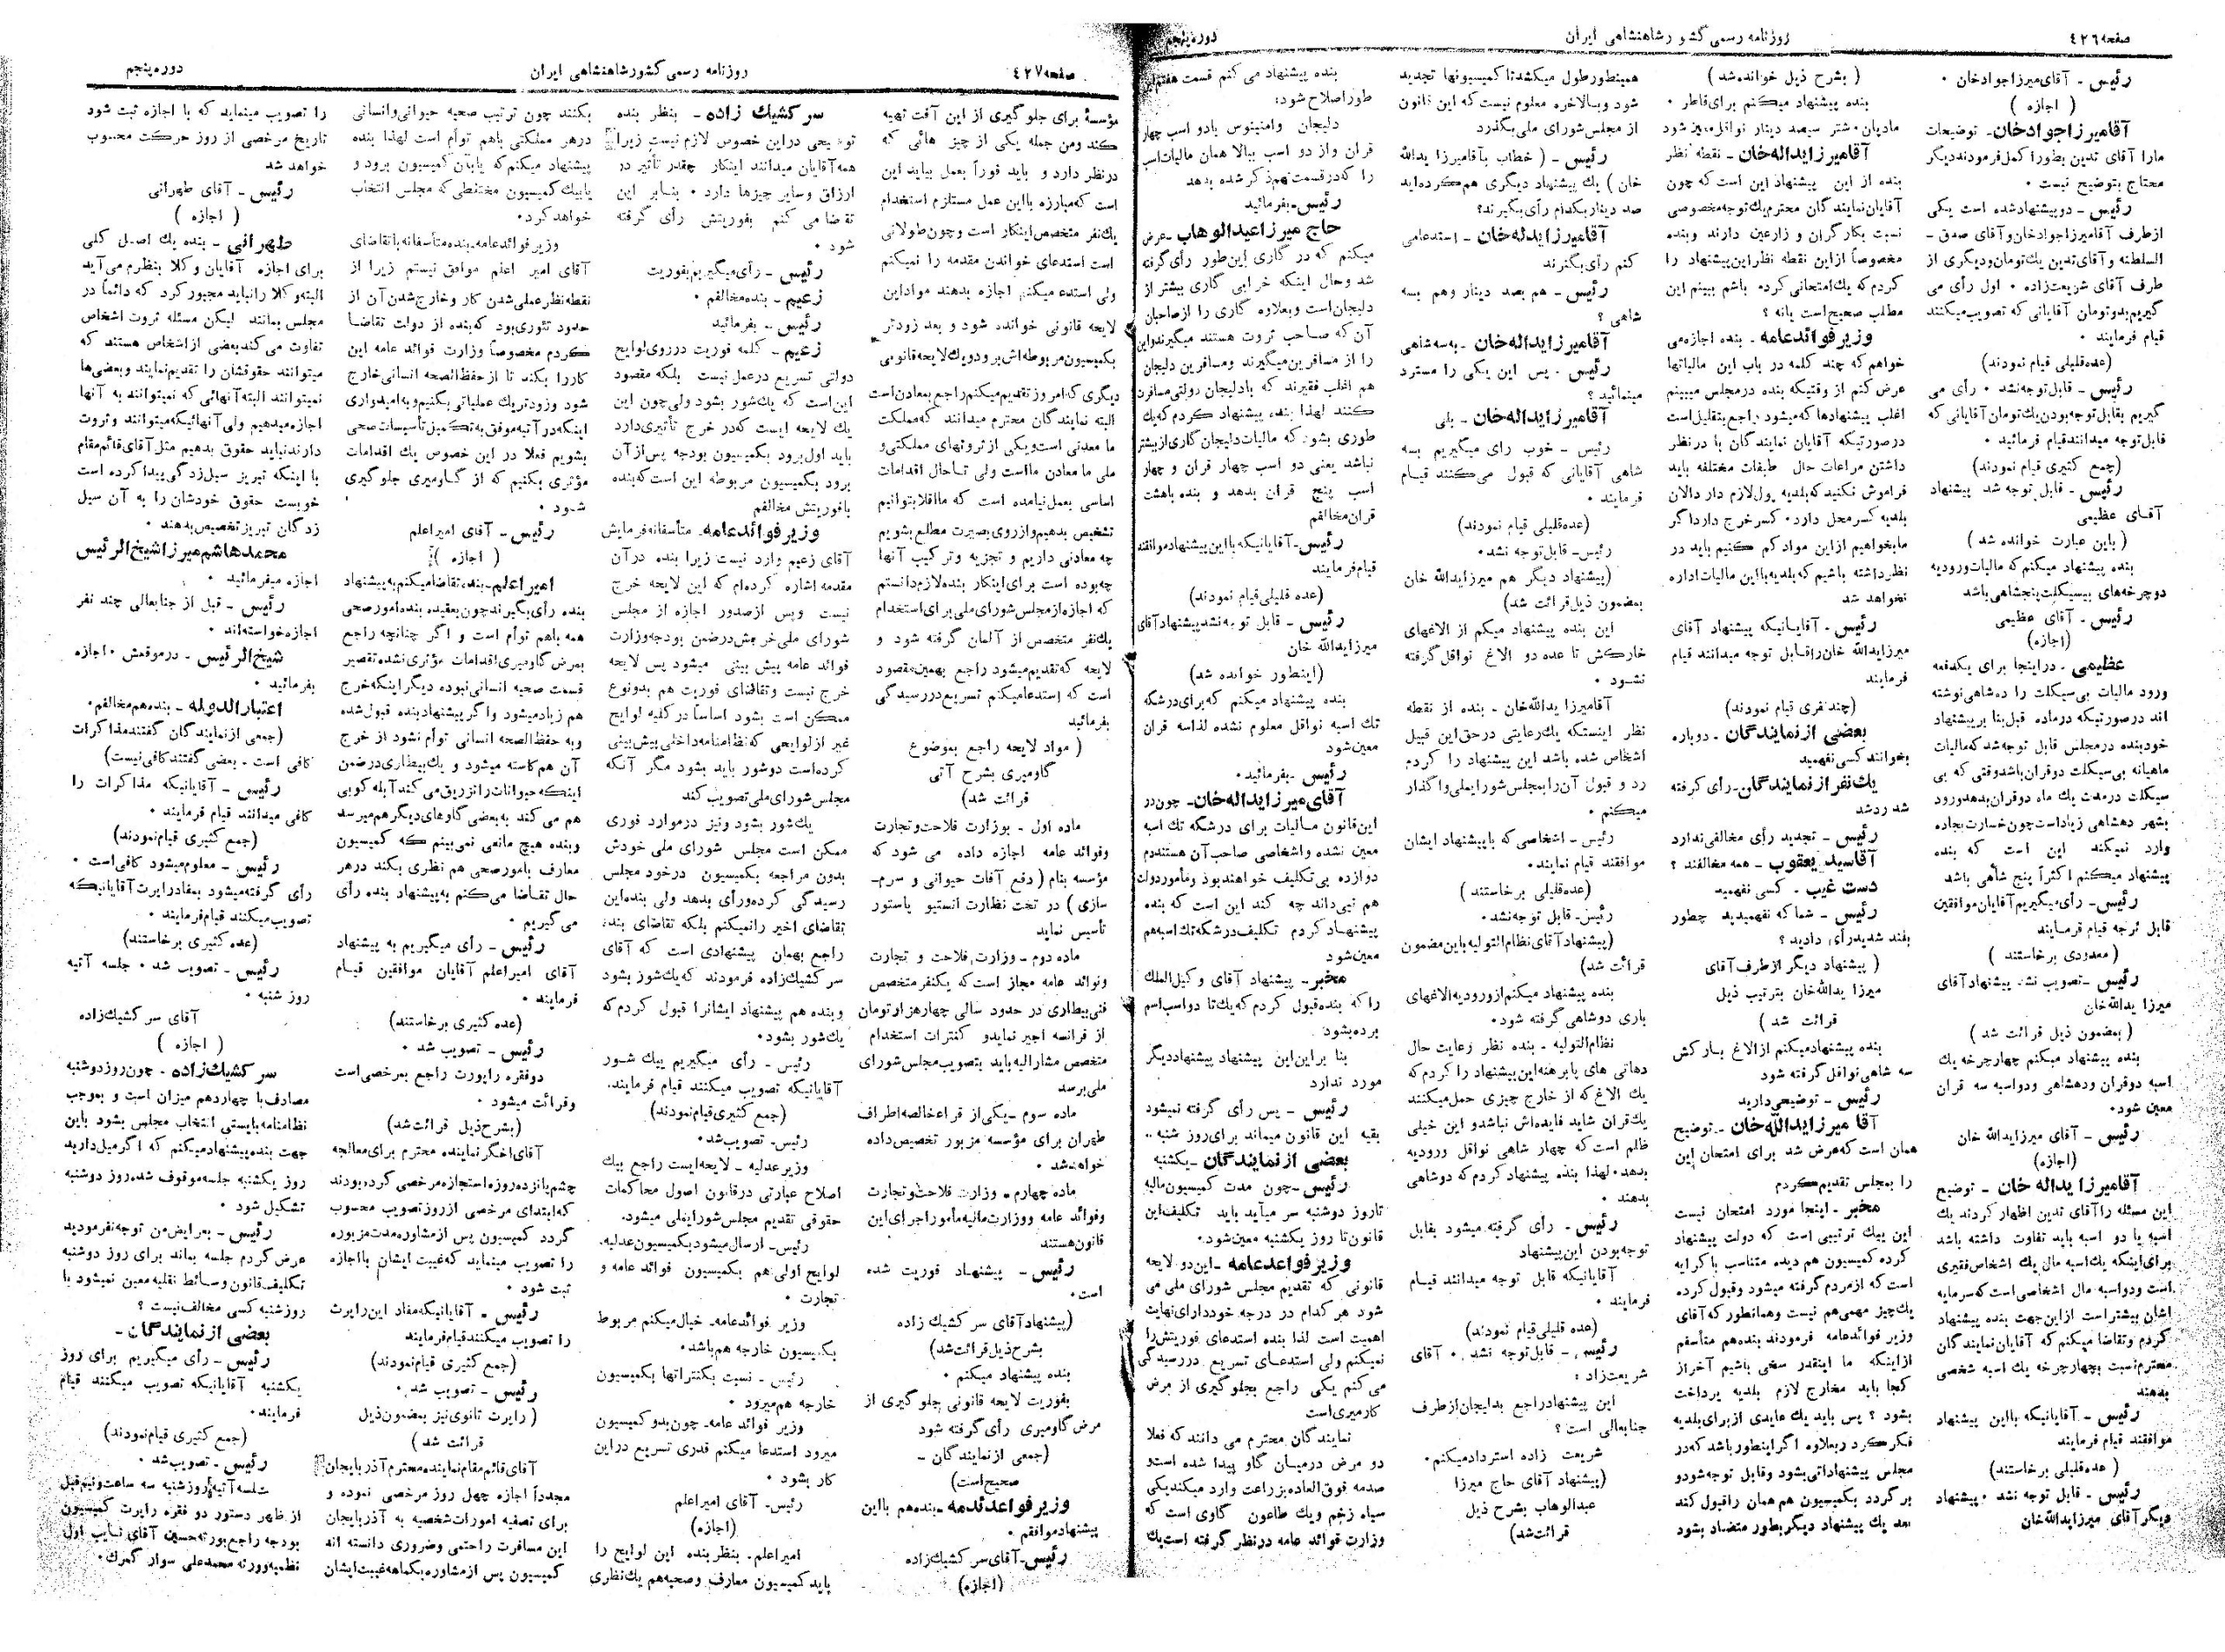 صفحه ٤٢٦
روزنامه رسمی کشور شاهنشاهی ایران
دوره پنجم
رئیس ـ آقای میرزا جواد خان ۰
( اجازه )
آقا میرزا جواد خان ـ توضیحات
مارا آقای تدین بطور اکمل فرمودند دیگر
محتاج بتوضیح نیست ۰
رئیس ـ دو پیشنهاد شده است یکی
از طرف آقا میرزا جواد خان و آقای صدق ـ
السلطنه و آقای تدین یک تومان و دیگری از
طرف آقای شریعت زاده ۰ اول رأی می
گیریم بدو تومان آقایانی که تصویب میکنند
قیام فرمایند ۰
(عده قلیلی قیام نمودند)
رئیس ـ قابل توجه نشد ۰ رأی می
گیریم بقابل توجه بودن یک تومان آقایانی که
قابل توجه میدانند قیام فرمائید ۰
(جمع کثیری قیام نمودند)
رئیس ـ قابل توجه شد پیشنهاد
آقای عظیمی
( باین عبارت خوانده شد )
بنده پیشنهاد میکنم که مالیات ورودیه
دوچرخه های بیسیکلت پنجشاهی باشد
رئیس ـ آقای عظیمی
(اجازه)
عظیمی ـ در اینجا برای یکدفعه
ورود مالیات بی سیکلت را ده شاهی نوشته
اند در صورتیکه در ماده قبل بنا بر پیشنهاد
خود بنده در مجلس قابل توجه شد که مالیات
ماهیانه بی سیکلت دو قران باشد وقتی که بی
سیکلت در مدت یک ماه دو قران بدهد ورود
بشهر دهشاهی زیاد است چون خسارت بجاده
وارد نمیکند این است که بنده
پیشنهاد میکنم اکثراً پنج شاهی باشد
رئیس ـ رأی میگیریم آقایان موافقین
قابل توجه قیام فرمایند
( معدودی برخاستند )
رئیس ـ تصویب نشد پیشنهاد آقای
میرزا یدالله خان
( بمضمون ذیل قرائت شد )
بنده پیشنهاد میکنم چهار چرخه یک
اسبه دو قران و دهشاهی و دو اسبه سه قران
معین شود ۰
رئیس ـ آقای میرزا یدالله خان
(اجازه)
آقا میرزا یداله خان ـ توضیح
این مسئله را آقای تدین اظهار کردند یک
اسبه با دو اسبه باید تفاوت داشته باشد
برای اینکه یک اسبه مال یک اشخاص فقیری
است و دو اسبه مال اشخاصی است که سرمایه
اشان بیشتر است از این جهت بنده پیشنهاد
کردم و تقاضا میکنم که آقایان نمایندگان
محترم نسبت بچهار چرخه یک اسبه شخصی
بدهند
رئیس ـ آقایانیکه با این پیشنهاد
موافقند قیام فرمایند
( عده قلیلی برخاستند)
رئیس ـ قابل توجه نشد ۰ پیشنهاد
دیگر آقای میرزا یدالله خان
( بشرح ذیل خوانده شد )
بنده پیشنهاد میکنم برای قاطر ۰
مادیان ۰ شتر سیصد دینار نوافل معین شود
آقا میرزا یداله خان ـ نقطه نظر
بنده از این پیشنهاد این است که چون
آقایان نمایندگان محترم یک توجه مخصوصی
نسبت بکارگران و زارعین دارند و بنده
مخصوصاً از این نقطه نظر این پیشنهاد را
کردم که یک امتحانی کرده باشم ببینم این
مطلب صحیح است یا نه ؟
وزیر فوائد عامه ـ بنده اجازه می
خواهم که چند کلمه در باب این مالیاتها
عرض کنم از وقتیکه بنده در مجلس میبینم
اغلب پیشنهادها که میشود راجع بتقلیل است
در صورتیکه آقایان نمایندگان با در نظر
داشتن مراعات حال طبقات مختلفه باید
فراموش نکنید که بلدیه پول لازم دارد الان
بلدیه کسر محل دارد ۰ کسر خرج دارد اگر
ما بخواهیم از این مواد کم کنیم باید در
نظر داشته باشیم که بلدیه با این مالیات اداره
نخواهد شد
رئیس ـ آقایانیکه پیشنهاد آقای
میرزا یدالله خان را قابل توجه میدانند قیام
فرمایند
(چند نفری قیام نمودند)
بعضی از نمایندگان ـ دوباره
بخوانند کسی نفهمید
یک نفر از نمایندگان ـ رأی گرفته
شد رد شد
رئیس ـ تجدید رأی مخالفی ندارد
آقا سید یعقوب ـ همه مخالفند ؟
دست غیب ـ کسی نفهمید
رئیس ـ شما که نفهمیدید چطور
بلند شدید رأی دادید ؟
( پیشنهاد دیگر از طرف آقای
میرزا یدالله خان بترتیب ذیل
قرائت شد )
بنده پیشنهاد میکنم از الاغ بارکش
سه شاهی نوافل گرفته شود
رئیس ـ توضیحی دارید
آقا میرزا یدالله خان ـ توضیح
همان است که عرض شد برای امتحان این
را بمجلس تقدیم کردم
مخبر ـ اینجا مورد امتحان نیست
این بیک ترتیبی است که دولت پیشنهاد
کرده کمیسیون هم دیده متناسب با کرایه
است که از مردم گرفته میشود و قبول کرده
یک چیز مهمی هم نیست و همانطور که آقای
وزیر فوائد عامه فرمودند بنده هم متأسفم
از اینکه ما اینقدر سخی باشیم آخر از
کجا باید مخارج لازم بلدیه پرداخت
بشود ؟ پس باید یک عایدی از برای بلدیه
فکر کرد و بعلاوه اگر اینطور باشد که در
مجلس پیشنهاداتی بشود و قابل توجه شود و
بر گردد بکمیسیون هم همان را قبول کند
بعد یک پیشنهاد دیگر بطور متضاد بشود
همینطور طول میکشد تا کمیسیونها تجدید
شود و بالاخره معلوم نیست که این قانون
از مجلس شورای ملی بگذرد
رئیس ـ ( خطاب بآقا میرزا یدالله
خان ) یک پیشنهاد دیگری هم کرده اید
صد دینار بکدام رأی بگیرند؟
آقا میرزا یداله خان ـ استدعا می
کنم رأی بگیرند
رئیس ـ هم بصد دینار و هم بسه
شاهی ؟
آقا میرزا یداله خان ـ به سه شاهی
رئیس ـ پس این یکی را مسترد
مینمائید ؟
آقا میرزا یداله خان ـ بلی
رئیس ـ خوب رأی میگیریم بسه
شاهی آقایانی که قبول می کنند قیام
فرمایند ۰
(عده قلیلی قیام نمودند)
رئیس ـ قابل توجه نشد ۰
(پیشنهاد دیگر هم میرزا یدالله خان
بمضمون ذیل قرائت شد)
این بنده پیشنهاد میکم از الاغهای
خارکش تا عده دو الاغ نوافل گرفته
نشود ۰
آقا میرزا یدالله خان ـ بنده از نقطه
نظر اینستکه یک رعایتی در حق این قبیل
اشخاص شده باشد این پیشنهاد را کردم
رد و قبول آن را بمجلس شورای ملی واگذار
میکنم ۰
رئیس ـ اشخاصی که با پیشنهاد ایشان
موافقند قیام نمایند ۰
(عده قلیلی برخاستند )
رئیس ـ قابل توجه نشد ۰
(پیشنهاد آقای نظام التولیه باین مضمون
قرائت شد)
بنده پیشنهاد میکنم از ورودیه الاغهای
باری دو شاهی گرفته شود ۰
نظام التولیه ـ بنده نظر رعایت حال
دهاتی های پابرهنه این پیشنهاد را کردم که
یک الاغ که از خارج چیزی حمل میکنند
یک قران شاید فایده اش نباشد و این خیلی
ظلم است که چهار شاهی نوافل ورودیه
بدهد ۰ لهذا بنده پیشنهاد کردم که دو شاهی
بدهند ۰
رئیس ـ رأی گرفته میشود بقابل
توجه بودن این پیشنهاد
آقایانیکه قابل توجه میدانند قیام
فرمایند ۰
(عده قلیلی قیام نمودند)
رئیس ـ قابل توجه نشد ۰ آقای
شریعت زاده :
این پیشنهاد راجع بدلیجان از طرف
جنابعالی است ؟
شریعت زاده استرداد میکنم ۰
(پیشنهاد آقای حاج میرزا
عبدالوهاب بشرح ذیل
قرائت شد)
بنده پیشنهاد می کنم قسمت هفتم این
طور اصلاح شود:
دلیجان و امنیبوس با دو اسب چهار
قران و از دو اسب ببالا همان مالیات اسب
را که در قسمت نهم ذکر شده بدهد
رئیس ـ بفرمائید
حاج میرزا عبدالوهاب ـ عرض
میکنم که در گاری این طور رأی گرفته
شد و حال اینکه خرابی گاری بیشتر از
دلیجان است و بعلاوه گاری را از صاحبان
آن که صاحب ثروت هستند میگیرند و این
را از مسافرین میگیرند و مسافرین دلیجان
هم اغلب فقیرند که با دلیجان دولتی مسافرت
کنند لهذا بنده پیشنهاد کردم که یک
طوری بشود که مالیات دلیجان گاری از بیشتر
نباشد یعنی دو اسب چهار قران و چهار
اسب پنج قران بدهد و بنده با هشت
قران مخالفم
رئیس ـ آقایانیکه با این پیشنهاد موافقند
قیام فرمایند
(عده قلیلی قیام نمودند)
رئیس ـ قابل توجه نشد پیشنهاد آقای
میرزا یدالله خان
(اینطور خوانده شد)
بنده پیشنهاد میکنم که برای درشکه
تک اسبه نوافل معلوم نشده لذا سه قران
معین شود
رئیس ـ بفرمائید ۰
آقای میرزا یداله خان ـ چون در
این قانون مالیات برای درشگه تک اسبه
معین نشده و اشخاصی صاحب آن هستند دم
دوازده بی تکلیف خواهند بود و مأمور دولت
هم نمی داند چه کند این است که بنده
پیشنهاد کردم تکلیف درشکه تک اسبه هم
معین شود
مخبر ـ پیشنهاد آقای وکیل الملک
را که بنده قبول کردم که یک تا دو اسب اسم
برده بشود
بنا بر این این پیشنهاد پیشنهاد دیگر
مورد ندارد
رئیس ـ پس رأی گرفته نمیشود
بقیه این قانون میماند برای روز شنبه ..
بعضی از نمایندگان ـ یکشنبه
رئیس ـ چون مدت کمیسیون مالیه
تا روز دوشنبه سر میآید باید تکلیف این
قانون تا روز یکشنبه معین شود ۰
وزیر فواعد عامه ـ این دو لایحه
قانونی که تقدیم مجلس شورای ملی می
شود هر کدام در درجه خود دارای نهایت
اهمیت است لذا بنده استدعای فوریتش را
نمیکنم ولی استدعای تسریع در رسیدگی
می کنم یکی راجع بجلوگیری از مرض
گامیری است
نمایندگان محترم می دانند که فعلا
دو مرض در میان گاو پیدا شده است و
صدمه فوق العاده بزراعت وارد میکند یکی
سیاه زخم و یک طاعون گاوی است که
وزارت فوائد عامه در نظر گرفته است یک
صفحه ٤٢٧
روزنامه رسمی کشور شاهنشاهی ایران
دوره پنجم
مؤسسهٔ برای جلوگیری از این آفت تهیه
کند و من جمله یکی از چیز هائی که
در نظر دارد و باید فوراً بعمل بیاید این
است که مبارزه با این عمل مستلزم استخدام
یک نفر متخصص اینکار است و چون طولانی
است استدعای خواندن مقدمه را نمیکنم
ولی استدعا میکنم اجازه بدهند مواد این
لایحه قانونی خوانده شود و بعد زودتر
بکمیسیون مربوطه اش برود و یک لایحه قانونی
دیگری که امروز تقدیم میکنم راجع بمعادن است
البته نمایندگان محترم میدانند که مملکت
ما معدنی است و یکی از ثروتهای مملکتی و
ملی ما معادن ما است ولی تا حال اقدامات
اساسی بعمل نیامده است که ما اقلا بتوانیم
تشخیص بدهیم و از روی بصیرت مطلع بشویم
چه معادنی داریم و تجزیه و ترکیب آنها
چه بوده است برای اینکار بنده لازم دانستم
که اجازه از مجلس شورای ملی برای استخدام
یک نفر متخصص از آلمان گرفته شود و
لایحه که تقدیم میشود راجع بهمین مقصود
است که استدعا میکنم تسریع در رسیدگی
بفرمائید
( مواد لایحه راجع بموضوع
گاومیری بشرح آتی
قرائت شد)
ماده اول ـ بوزارت فلاحت و تجارت
و فوائد عامه اجازه داده می شود که
مؤسسه بنام ( دفع آفات حیوانی و سرم ـ
سازی ) در تحت نظارت انستیو پاستور
تأسیس نماید
ماده دوم ـ وزارت فلاحت و تجارت
و فوائد عامه مجاز است که یکنفر متخصص
فنی بیطاری در حدود سالی چهار هزار تومان
از فرانسه اجیر نماید و کنترات استخدام
متخصص مشارالیه باید بتصویب مجلس شورای
ملی برسد
ماده سوم ـ یکی از قراء خالصه اطراف
طهران برای مؤسسه مزبور تخصیص داده
خواهد شد ۰
ماده چهارم ـ وزارت فلاحت و تجارت
و فوائد عامه و وزارت مالیه مأمور اجرای این
قانون هستند
رئیس ـ پیشنهاد فوریت شده
است ۰
(پیشنهاد آقای سرکشیک زاده
بشرح ذیل قرائت شد)
بنده پیشنهاد میکنم ۰
بفوریت لایحه قانونی جلوگیری از
مرض گاومیری رأی گرفته شود
(جمعی از نمایندگان ـ
صحیح است)
وزیر فواعد عامه ـ بنده هم با این
پیشنهاد موافقم ۰
رئیس ـ آقای سرکشیک زاده
(اجازه)
سرکشیک زاده ـ بنظر بنده
توضیحی در این خصوص لازم نیست زیرا
همه آقایان میدانند اینکار چقدر تأثیر در
ارزاق و سایر چیزها دارد ۰ بنابر این
تقاضا می کنم بفوریتش رأی گرفته
شود ۰
رئیس ـ رأی میگیریم بفوریت
زعیم ـ بنده مخالفم ۰
رئیس ـ بفرمائید
زعیم ـ کلمه فوریت در روی لوایح
دولتی تسریع در عمل نیست بلکه مقصود
این است که یک شور بشود ولی چون این
یک لایحه ایست که در خرج تأثیری دارد
باید اول برود بکمیسیون بودجه پس از آن
برود بکمیسیون مربوطه این است که بنده
با فوریتش مخالفم
وزیر فوائد عامه ـ متأسفانه فرمایش
آقای زعیم وارد نیست زیرا بنده در آن
مقدمه اشاره کرده ام که این لایحه خرج
نیست و پس از صدور اجازه از مجلس
شورای ملی خرجش در ضمن بودجه وزارت
فوائد عامه پیش بینی میشود پس لایحه
خرج نیست و تقاضای فوریت هم بدو نوع
ممکن است بشود اساساً در کلیه لوایح
غیر از لوایحی که نظامنامه داخلی پیش بینی
کرده است دو شور باید بشود مگر آنکه
مجلس شورای ملی تصویب کند
یک شور بشود و نیز در موارد فوری
ممکن است مجلس شورای ملی خودش
بدون مراجعه بکمیسیون در خود مجلس
رسیدگی کرده و رأی بدهد ولی بنده این
تقاضای اخیر را نمیکنم بلکه تقاضای بنده
راجع بهمان پیشنهادی است که آقای
سرکشیک زاده فرمودند که یک شور بشود
و بنده هم پیشنهاد ایشانرا قبول کردم که
یک شور بشود ۰
رئیس ـ رأی میگیریم بیک شور
آقایانیکه تصویب میکنند قیام فرمایند.
(جمع کثیری قیام نمودند)
رئیس ـ تصویب شد ۰
وزیر عدلیه ـ لایحه ایست راجع بیک
اصلاح عبارتی در قانون اصول محاکمات
حقوقی تقدیم مجلس شورای ملی میشود.
رئیس ـ ارسال میشود بکمیسیون عدلیه.
لوایح اولی هم بکمیسیون فوائد عامه و
تجارت ۰
وزیر فوائد عامه ـ خیال میکنم مربوط
بکمیسیون خارجه هم باشد ۰
رئیس ـ نسبت بکنتراتها بکمیسیون
خارجه هم میرود ۰
وزیر فوائد عامه ـ چون بدو کمیسیون
میرود استدعا میکنم قدری تسریع در این
کار بشود ۰
رئیس ـ آقای امیر اعلم
(اجازه)
امیر اعلم ـ بنظر بنده این لوایح را
باید کمیسیون معارف و صحیه هم یک نظری
بکنند چون ترتیب صحیه حیوانی و انسانی
در هر مملکتی باهم توأم است لهذا بنده
پیشنهاد میکنم که یا بآن کمیسیون برود و
یا بیک کمیسیون مختلطی که مجلس انتخاب
خواهد کرد ۰
وزیر فوائد عامه ـ بنده متأسفانه با تقاضای
آقای امیر اعلم موافق نیستم زیرا از
نقطه نظر عملی شدن کار و خارج شدن آن از
حدود تئوری بود که بنده از دولت تقاضا
کردم مخصوصاً وزارت فوائد عامه این
کار را بکند تا از حفظ الصحه انسانی خارج
شود و زودتر یک عملیاتی بکنیم و به امیدواری
اینکه در آتیه موفق به تکمیل تأسیسات صحی
بشویم فعلا در این خصوص یک اقدامات
مؤثری بکنیم که از گاومیری جلوگیری
شود ۰
رئیس ـ آقای امیر اعلم
( اجازه )
امیر اعلم ـ بنده تقاضا میکنم به پیشنهاد
بنده رأی بگیرند چون بعقیده بنده امور صحی
همه باهم توأم است و اگر چنانچه راجع
بمرض گاومیری اقدامات مؤثری نشده تقصیر
قسمت صحیه انسانی نبوده دیگر اینکه خرج
هم زیاد میشود و اگر پیشنهاد بنده قبول شده
و به حفظ الصحه انسانی توأم نشود از خرج
آن هم کاسته میشود و یک بیطاری در ضمن
اینکه حیوانات را تزریق می کند آبله کوبی
هم می کند به بعضی گاوهای دیگر هم میرسد
و بنده هیچ مانعی نمی بینم که کمیسیون
معارف بامور صحی هم نظری بکند در هر
حال تقاضا می کنم به پیشنهاد بنده رأی
می گیریم ۰
رئیس ـ رأی میگیریم به پیشنهاد
آقای امیر اعلم آقایان موافقین قیام
فرمایند ۰
(عده کثیری برخاستند)
رئیس ـ تصویب شد ۰
دو فقره راپورت راجع بمرخصی است
و قرائت میشود ۰
(بشرح ذیل قرائت شد)
آقای اخگر نماینده محترم برای معالجه
چشم پانزده روزه استجازه مرخصی کرده بودند
که ابتدای مرخصی از روز تصویب محسوب
گردد کمیسیون پس از مشاوره مدت مزبوره
را تصویب مینماید که غیبت ایشان با اجازه
ثبت شود ۰
رئیس ـ آقایانیکه مفاد این راپرت
را تصویب میکنند قیام فرمایند
(جمع کثیری قیام نمودند)
رئیس ـ تصویب شد ۰
( راپرت ثانوی نیز بمضمون ذیل
قرائت شد )
آقای قائم مقام نماینده محترم آذربایجان
مجدداً اجازه چهل روز مرخصی نموده و
برای تصفیه امورات شخصیه به آذربایجان
این مسافرت را حتمی و ضروری دانسته اند
کمیسیون پس از مشاوره یکماهه غیبت ایشان
را تصویب مینماید که با اجازه ثبت شود
تاریخ مرخصی از روز حرکت محسوب
خواهد شد
رئیس ـ آقای طهرانی
( اجازه )
طهرانی ـ بنده یک اصل کلی
برای اجازه آقایان وکلا بنظرم می آید
البته وکلا را نباید مجبور کرد که دائماً در
مجلس بمانند لیکن مسئله ثروت اشخاص
تفاوت می کند بعضی از اشخاص هستند که
میتوانند حقوقشان را تقدیم نمایند و بعضی ها
نمیتوانند البته آنهائی که نمیتوانند به آنها
اجازه میدهیم ولی آنهائیکه میتوانند و ثروت
دارند نباید حقوق بدهیم مثل آقای قائم مقام
با اینکه تبریز سیل زدگی پیدا کرده است
خوبست حقوق خودشان را به آن سیل
زدگان تبریز تخصیص بدهند ۰
محمد هاشم میرزا شیخ الرئیس
اجازه میفرمائید ۰
رئیس ـ قبل از جنابعالی چند نفر
اجازه خواسته اند ۰
شیخ الرئیس ـ در موقعش ۰ اجازه
بفرمائید ۰
اعتبار الدوله ـ بنده هم مخالفم ۰
(جمعی از نمایندگان گفتند مذاکرات
کافی است ـ بعضی گفتند کافی نیست)
رئیس ـ آقایانیکه مذاکرات را
کافی میدانند قیام فرمایند ۰
(جمع کثیری قیام نمودند)
رئیس ـ معلوم میشود کافی است ۰
رأی گرفته میشود بمفاد راپرت آقایانیکه
تصویب میکنند قیام فرمایند ۰
(عده کثیری برخاستند)
رئیس ـ تصویب شد ۰ جلسه آتیه
روز شنبه ۰
آقای سرکشیک زاده
( اجازه )
سرکشیک زاده ـ چون روز دوشنبه
مصادف با چهاردهم میزان است و بموجب
نظامنامه بایستی انتخاب مجلس بشود باین
جهت بنده پیشنهاد میکنم که اگر میل دارید
روز یکشنبه جلسه موقوف شده روز دوشنبه
تشکیل شود ۰
رئیس ـ بعرایض من توجه نفرمودید
عرض کردم جلسه بماند برای روز دوشنبه
تکلیف قانون وسائط نقلیه معین نمیشود با
روز شنبه کسی مخالف نیست ؟
بعضی از نمایندگان ـ
رئیس ـ رأی میگیریم برای روز
یکشنبه آقایانیکه تصویب میکنند قیام
فرمایند ۰
(جمع کثیری قیام نمودند)
رئیس ـ تصویب شد ۰
جلسه آتیه روز شنبه سه ساعت و نیم قبل
از ظهر دستور دو فقره راپرت کمیسیون
بودجه راجع بورثه حسین آقای نایب اول
نظمیه و ورثه محمد علی سوار گمرک ۰